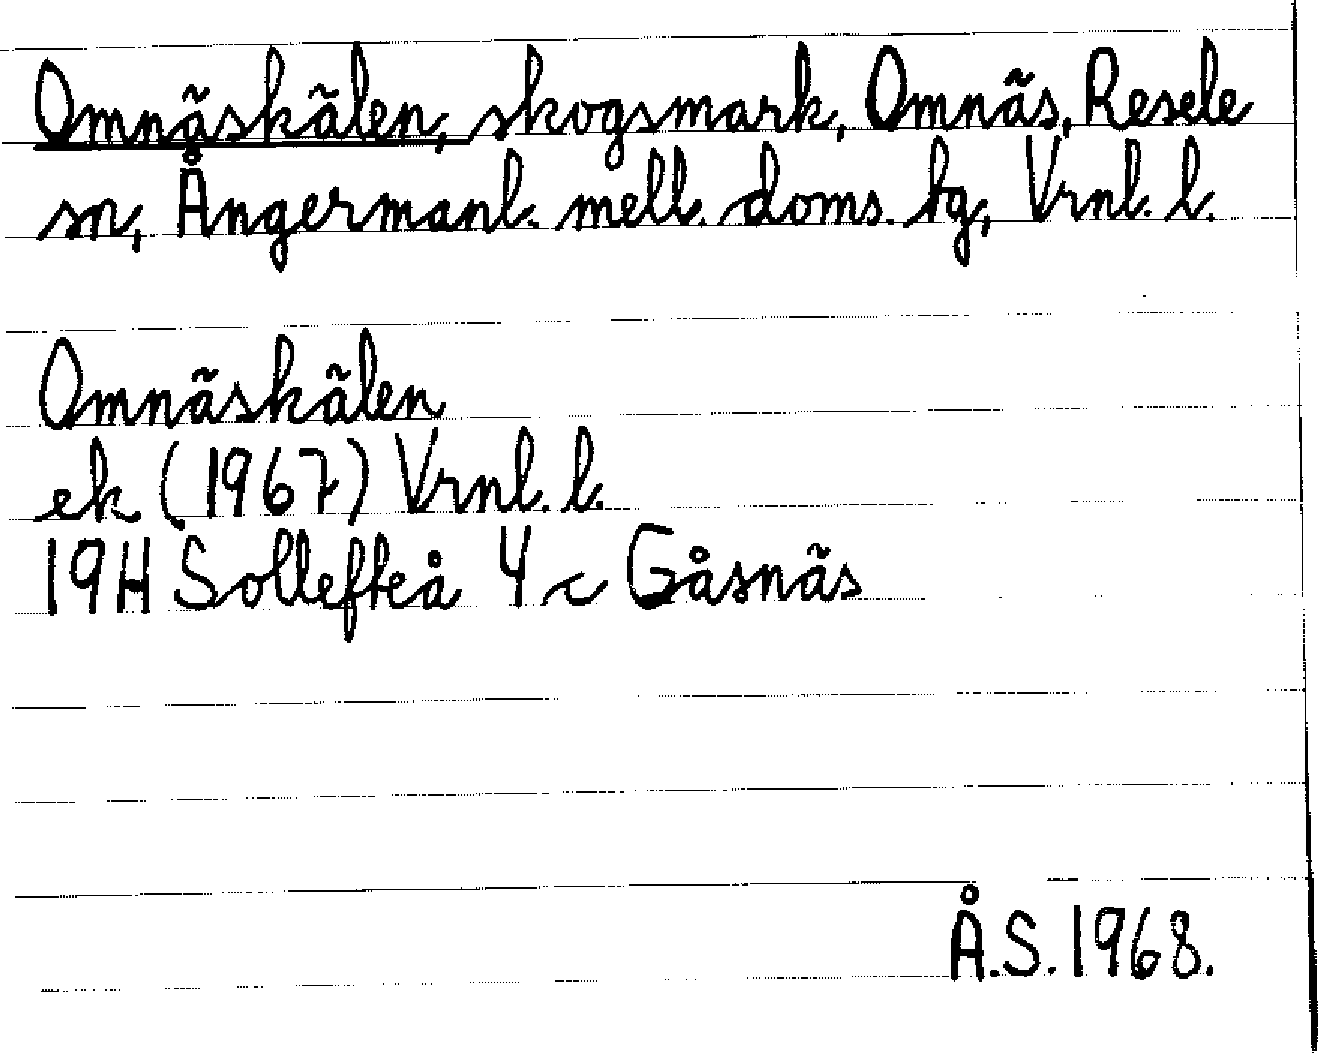 Omnäskälen, skogsmark, Omnäs, Resele
sn, Ångermanl. mell. doms. hg, Vrnl. l.
Omnäskälen
ek (1967) Vrnl. l.
19H Sollefteå 4 c Gåsnäs
Å.S. 1968.